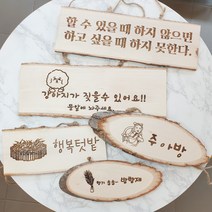 할 수 있을 때 하지 않으면
하고 싶을 때 하지 못한다.
강아지가 짖을수 있어요!!
행복텃밭
주아방